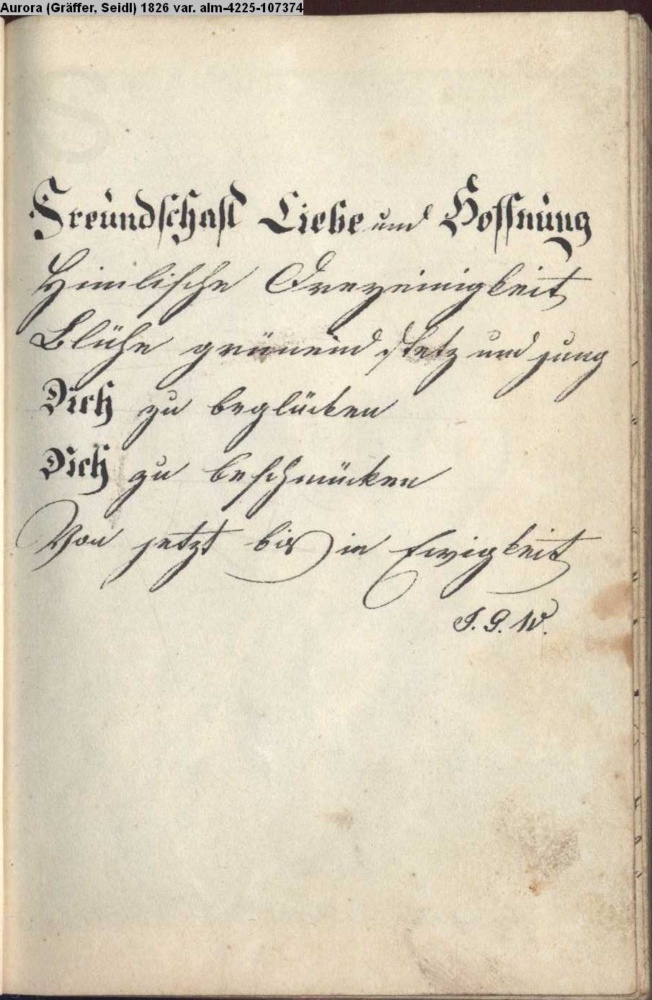 Aurora (Gräffer, Seidl) 1826 var. alm-4225-107374
Freundschaft Liebe und Hoffnung
Himlische Dreyeinigkeit
Blühe grünend stetz und jung
Dich zu beglücken
Dich zu beschmücken
Von jetzt bis in Ewigkeit
J. G. W.